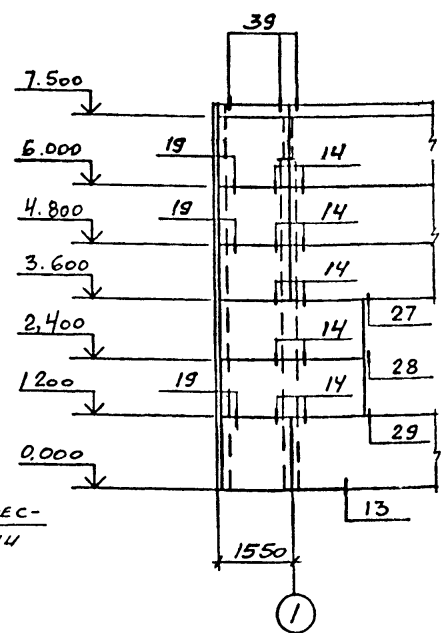 39
7.500
6.000 19 14
4.800 19 14
3.600 14
27
2,400 14
28
1200 19 14
29
0,000
13
ЕС-
1550
1